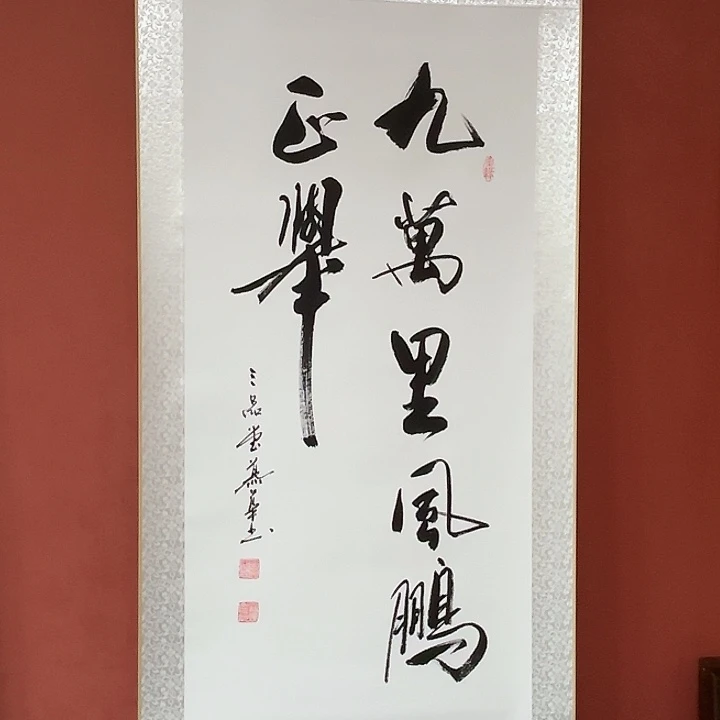 九萬里風鵬
正舉
三品堂燕華书